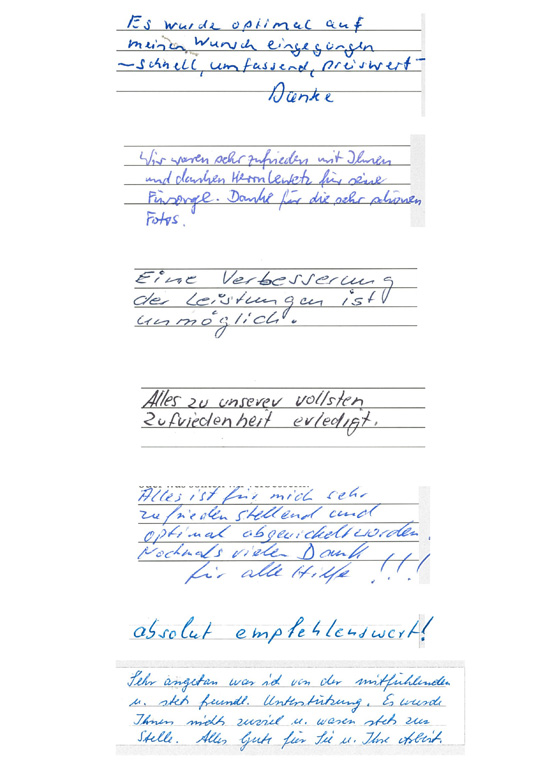 Es wurde optimal auf
meinen Wunsch eingegangen
– schnell, umfassend, preiswert –
Danke
Wir waren sehr zufrieden mit Ihnen
und danken Herrn für seine
Fürsorge. Danke für die sehr schönen
Fotos.
Eine Verbesserung
der Leistungen ist
unmöglich.
Alles zu unserer vollsten
Zufriedenheit erledigt.
Alles ist für mich sehr
zufriedenstellend und
optimal abgewickelt worden.
Nochmals vielen Dank
für alle Hilfe !!!
absolut empfehlenswert!
Sehr angetan war ich von der mitfühlenden
u. stets freundl. Unterstützung. Es wurde
Ihnen nichts zuviel u. waren stets zur
Stelle. Alles Gute für Sie u. Ihre Arbeit.